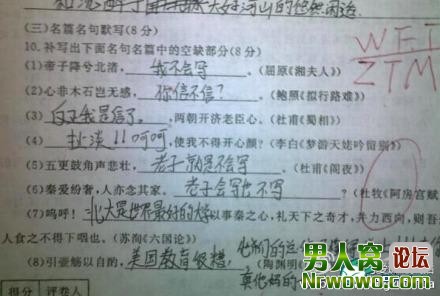 大好河山的悠然闲适
(三)名篇名句默写(8分)
10.补写出下面名句名篇中的空缺部分(8分)
WFI
ZTM
(1)帝子降兮北渚, 我不会写 。(屈原《湘夫人》)
(2)心非木石岂无感, 你信不信? 。(鲍照《拟行路难》)
(3) 反正我是信了。 ,两朝开济老臣心。(杜甫《蜀相》)
(4) 扯淡!!呵呵 ,使我不得开心颜?(李白《梦游天姥吟留别》)
(5)五更鼓角声悲壮, 老子就是不会写 。(杜甫《阁夜》)
(6)秦爱纷奢,人亦念其家, 老子会写也不写 ?(杜牧《阿房宫赋
(7)呜呼! 北大是世界最好的大学 以事秦之心,礼天下之奇才,并力西向,则吾
人食之不得下咽也。(苏洵《六国论》)
(8)引壶觞以自酌, 美国教育很糟! 他们的 (陶渊明
真他妈的
得分 评卷人
男人窝论坛
Nrwobbs.com